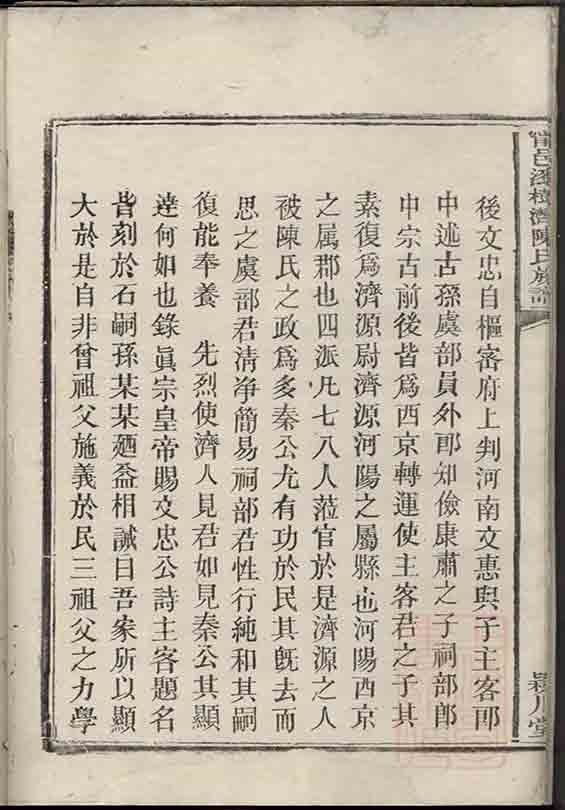 陳氏族譜
潁川堂
後文忠自樞密府上判河南文惠與子主客郎
中述古孫虞部員外郎知儉康肅之子祠部郎
中宗古前後皆爲西京轉運使主客君之子其
素復爲濟源尉濟源河陽之屬縣也河陽西京
之屬郡也四派凡七八人蒞官於是濟源之人
被陳氏之政爲多秦公尤有功於民其旣去而
思之虞部君清净簡易祠部君性行純和其嗣
復能奉養 先烈使濟人見君如見秦公其顯
達何如也錄眞宗皇帝賜文忠公詩主客題名
皆刻於石嗣孫某某廼益相誡曰吾家所以顯
大於是自非曾祖父施義於民三祖父之力學